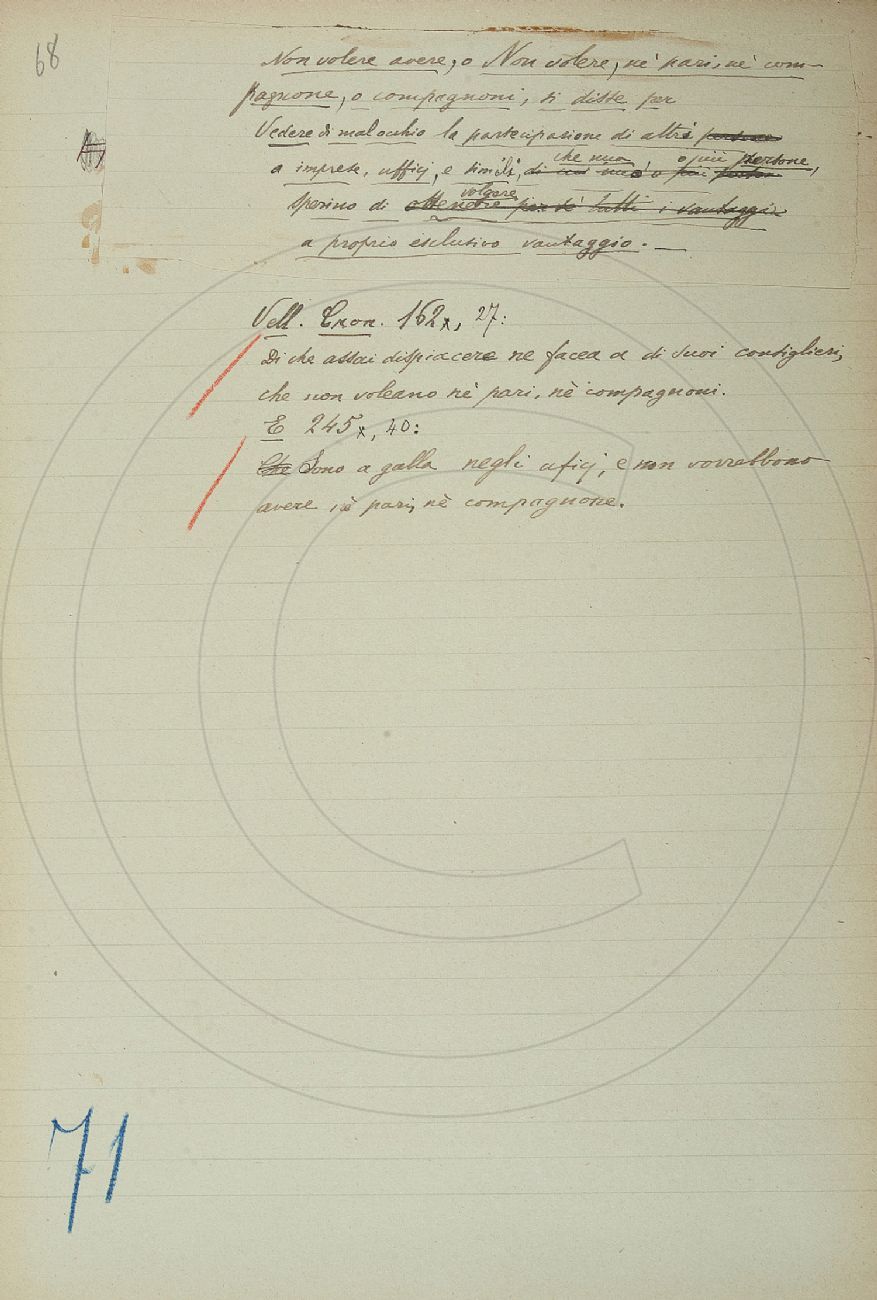 68
Non volere avere, o Non volere, nè pari, nè com-
pagnone, o compagnoni, si disse per
Vedere di malocchio la partecipazione di altri persone
che una o più persone,
a imprese, uffizj, e simili, di o più persone
volgere
sperino di ottenere per sè tutti i vantaggi
a proprio esclusivo vantaggio. —
Vell. Cron. 162x, 27:
Di che assai dispiacere ne facea a di suoi consiglieri,
che non voleano nè pari, nè compagnoni.
E 245x, 40:
Che Sono a galla negli uficj, e non vorrebbono
avere nè pari, nè compagnone.
71